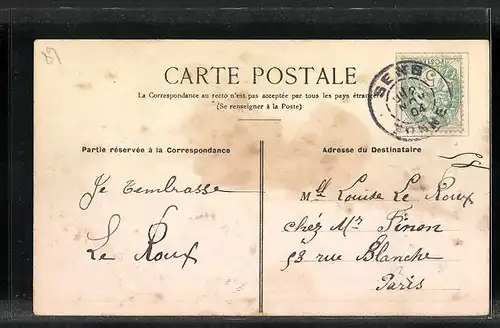 89
CARTE POSTALE
La Correspondance au recto n'est pas acceptée par tous les pays étrangers
(Se renseigner à la Poste)
SENS
YONNE
04
Partie réservée à la Correspondance
Adresse du Destinataire
Je t'embrasse
Le Roux
Mlle Louise Le Roux
chéz Mr Finon
53 rue Blanche
Paris